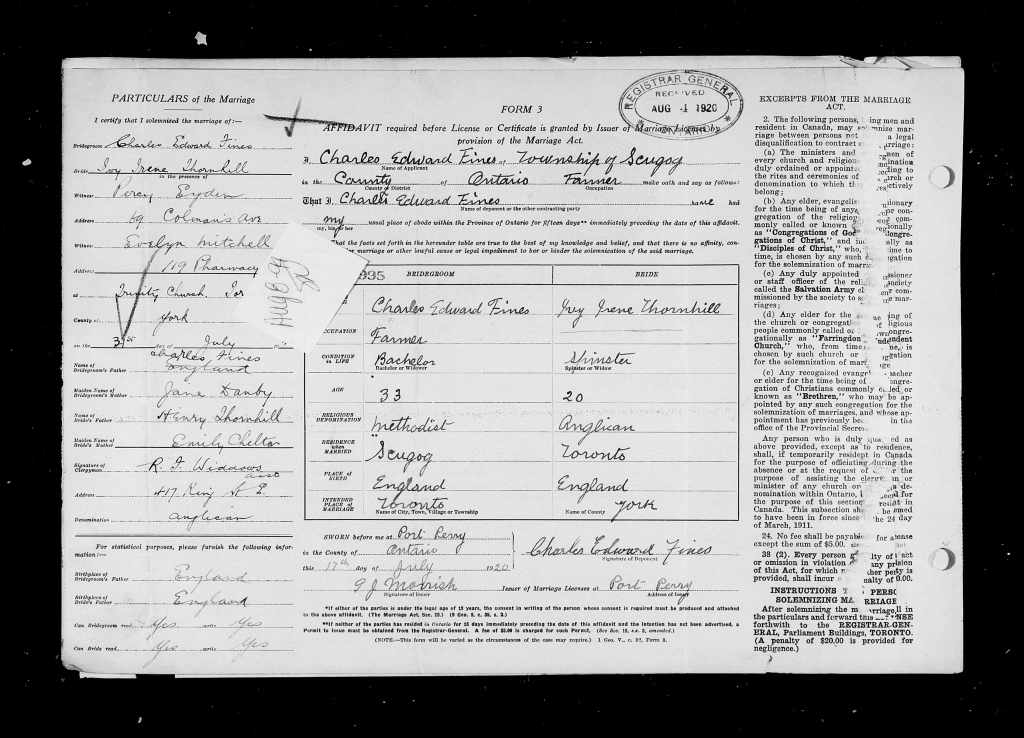 PARTICULARS of the Marriage
I certify that I solemnized the marriage of:—
Bridegroom Charles Edward Fines
Bride Ivy Irene Thornhill
in the presence of
Witness Percy
Address 69 Colman's Ave
Witness Evelyn Mitchell
Address 119 Pharmacy
at Trinity Church, Tor
County of York
on the 31st day of July
Name of Bridegroom's Father Charles Fines
England
Maiden Name of Bridegroom's Mother Jane Danby
Name of Bride's Father Henry Thornhill
Maiden Name of Bride's Mother Emily
Signature of Clergyman R. J. Widdows
Address 417 King St E.
Denomination Anglican
For statistical purposes, please furnish the following information:—
Birthplace of Bridegroom's Father England
Birthplace of Bride's Father England
Can Bridegroom read Yes write Yes
Can Bride read Yes write Yes
Aug 6
REGISTRAR GENERAL
RECEIVED
AUG -4 1920
ONTARIO
FORM 3
AFFIDAVIT required before License or Certificate is granted by Issuer of Marriage Licenses by
provision of the Marriage Act.
I, Charles Edward Fines of Township of Scugog
Name of Applicant
in the County of Ontario Farmer make oath and say as follows:
County or District Occupation
That I, Charles Edward Fines have had
Name of deponent or the other contracting party
my usual place of abode within the Province of Ontario for fifteen days** immediately preceding the date of this affidavit.
my, his or her
That the facts set forth in the hereunder table are true to the best of my knowledge and belief, and that there is no affinity, con-
or marriage or other lawful cause or legal impediment to bar or hinder the solemnization of the said marriage.
935 BRIDEGROOM BRIDE
Charles Edward Fines Ivy Irene Thornhill
OCCUPATION Farmer
CONDITION IN LIFE Bachelor Spinster
Bachelor or Widower Spinster or Widow
AGE 33 20
RELIGIOUS DENOMINATION Methodist Anglican
RESIDENCE when MARRIED Scugog Toronto
PLACE OF BIRTH England England
INTENDED PLACE OF MARRIAGE Toronto York
Name of City, Town, Village or Township Name of County
SWORN before me at Port Perry
in the County of Ontario
this 17th day of July 1920
Charles Edward Fines
Signature of Deponent
G J Morrish Issuer of Marriage Licenses at Port Perry
Signature of Issuer Address of Issuer
*If either of the parties is under the legal age of 18 years, the consent in writing of the person whose consent is required must be produced and attached
to the above affidavit.
**If neither of the parties has resided in Ontario for 15 days immediately preceding the date of this affidavit and the intention has not been advertised, a
Permit to issue must be obtained from the Registrar-General. A fee of $5.00 is charged for each Permit.
(NOTE—This form will be varied as the circumstances of the case may require.)
EXCERPTS FROM THE MARRIAGE
ACT.
2. The following persons, being men and
resident in Canada, may solemnize mar-
riage between persons not a legal
disqualification to contract marriage:
(a) The ministers and
every church and religious
duly ordained or appointed
the rites and ceremonies of
denomination to which they
belong;
(b) Any elder, evangelist
for the time being of any
gregation of the religious
monly called or known
as "Congregations of God
gations of Christ," and
"Disciples of Christ," who,
time, is chosen by any such
for the solemnization of marriage
(c) Any duly appointed
or staff officer of the religious society
called the Salvation Army
missioned by the society to
riages;
(d) Any elder for the
the church or congregation
people commonly called or
gationally as "Farringdon Independent
Church," who, from time
chosen by such church or
for the solemnization of marriage
(e) Any recognized evangelist
or elder for the time being of
gation of Christians commonly called or
known as "Brethren," who may be ap-
pointed by any such congregation for the
solemnization of marriages, and whose ap-
pointment has previously been in the
office of the Provincial Secretary
Any person who is duly qualified as
above provided, except as to residence,
shall, if temporarily resident in Canada
for the purpose of officiating during the
absence or at the request of or for the
purpose of assisting the clergyman or
minister of any church or
nomination within Ontario,
the purpose of this section
Canada. This subsection shall be deemed
to have been in force since the 24 day
of March, 1911.
24. No fee shall be payable for a license
except the sum of $5.00.
38 (2). Every person guilty of act
or omission in violation of any provision
of this Act, for which no other penalty is
provided, shall incur
INSTRUCTIONS TO PERSONS
SOLEMNIZING MARRIAGE
After solemnizing the marriage fill in
the particulars and forward this LICENSE
forthwith to the REGISTRAR-GEN-
ERAL, Parliament Buildings, TORONTO.
(A penalty of $20.00 is provided for
negligence.)